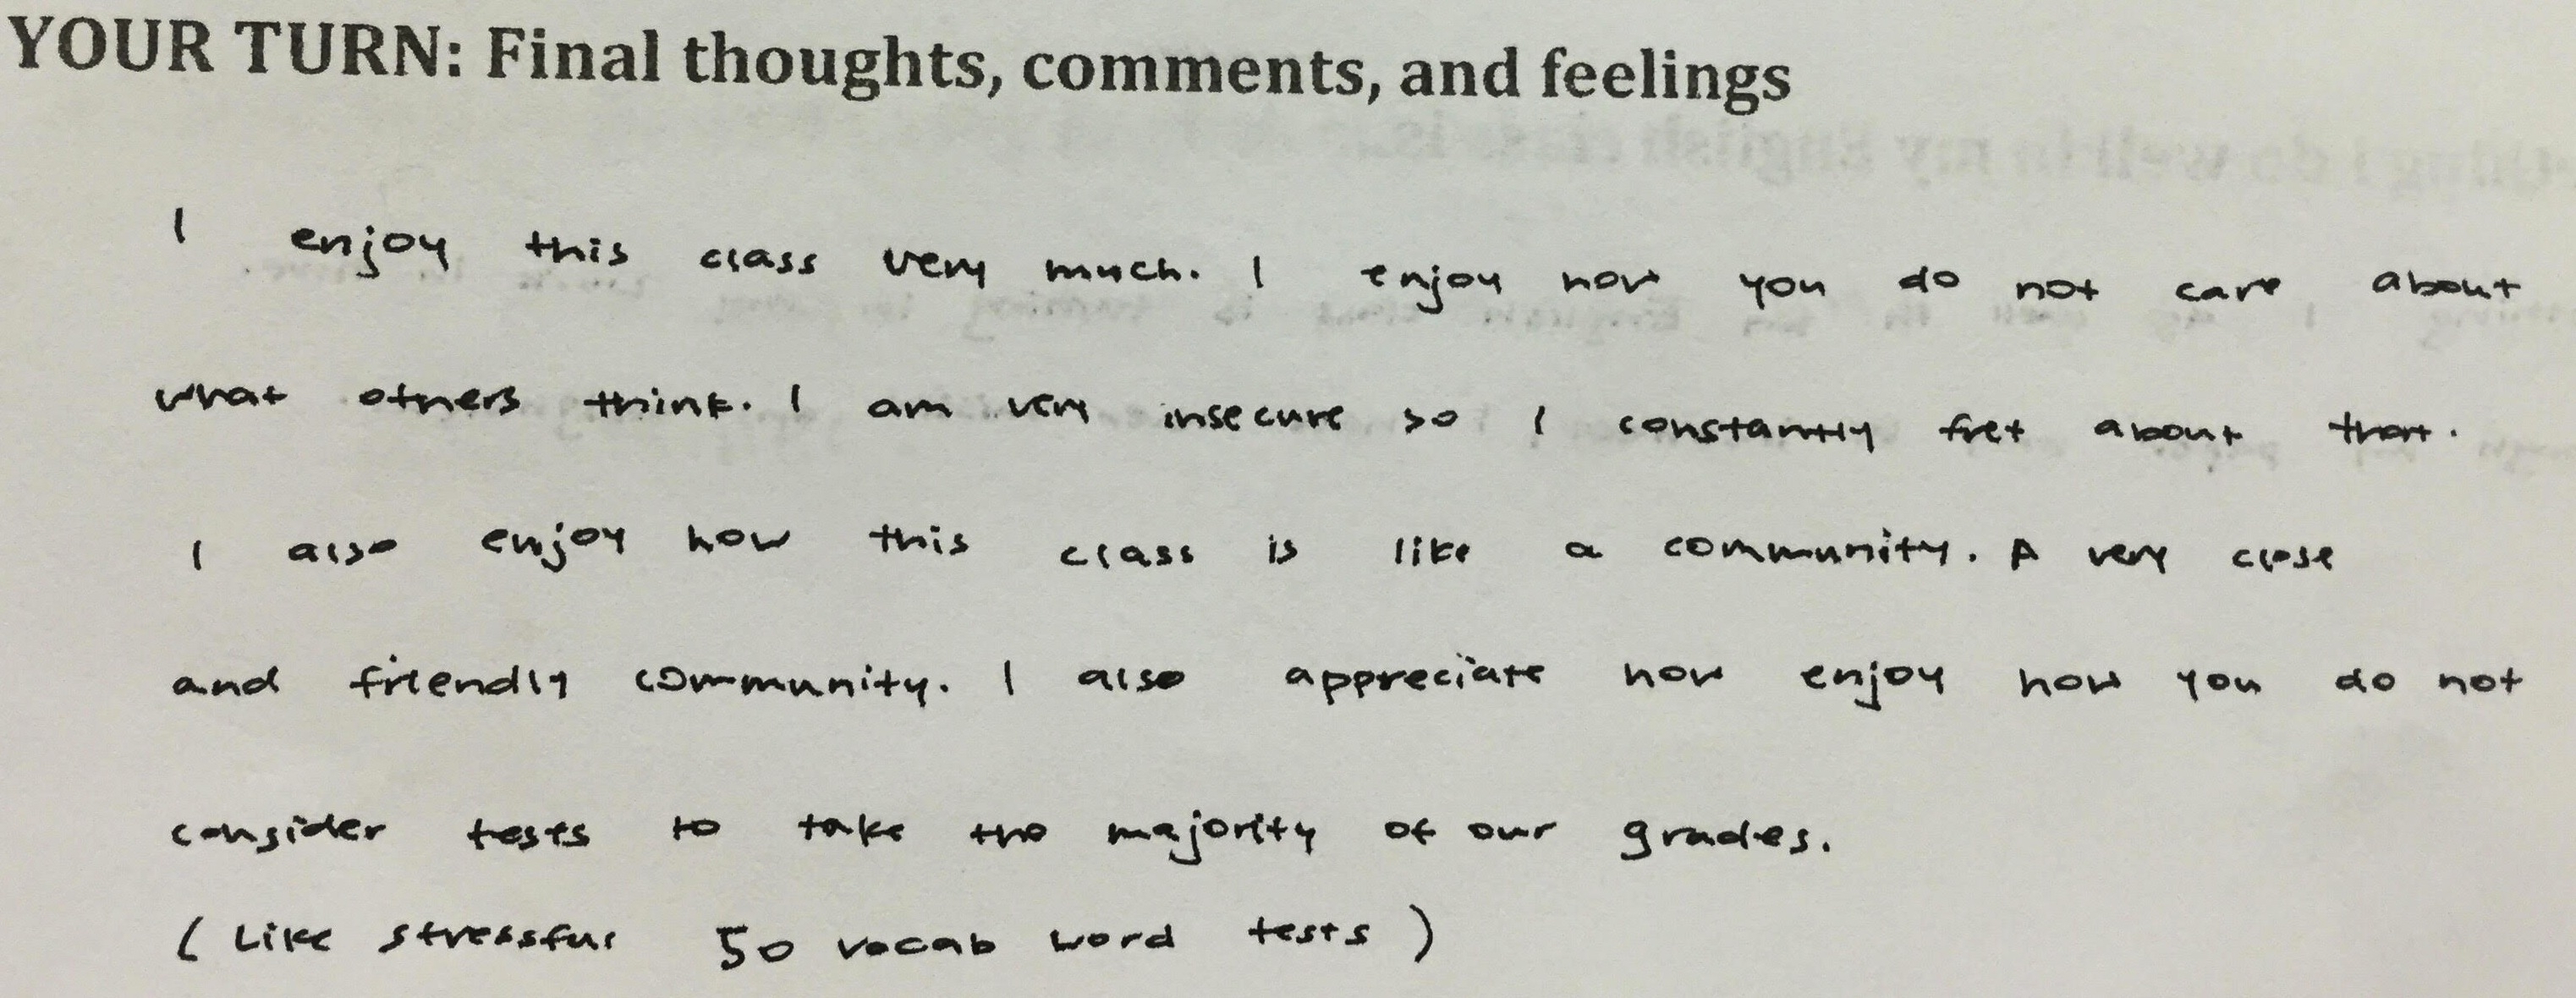 YOUR TURN: Final thoughts, comments, and feelings
I enjoy this class very much. I enjoy how you do not care about
what others think. I am very insecure so I constantly fret about that.
I also enjoy how this class is like a community. A very close
and friendly community. I also appreciate how enjoy how you do not
consider tests to take the majority of our grades.
(Like stressful 50 vocab word tests)